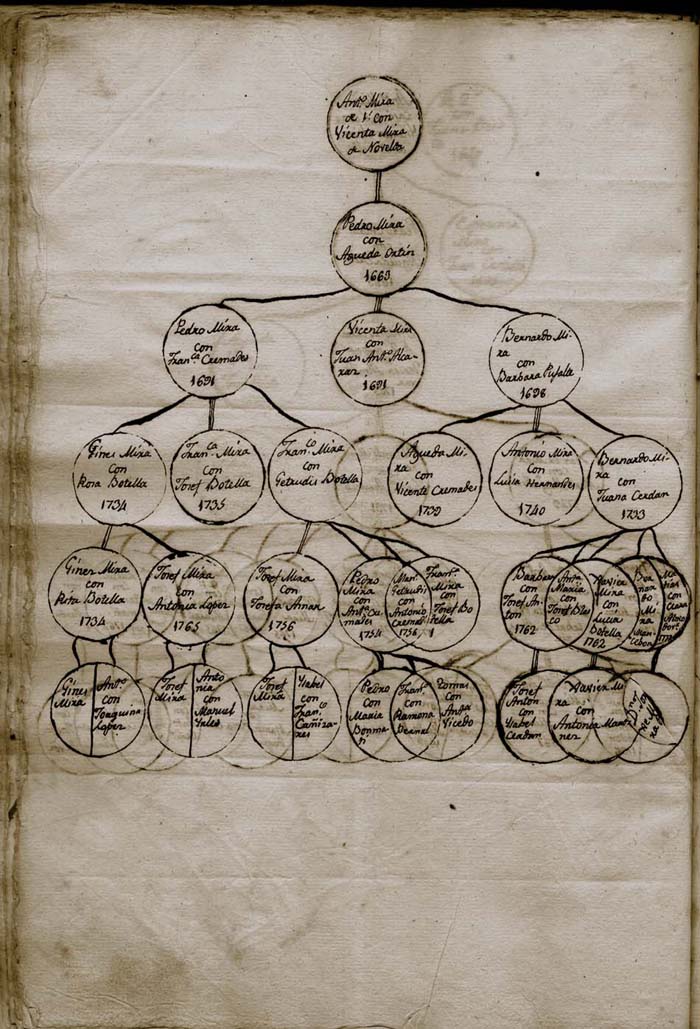 Ant.º Mira
de 1.º con
Vicenta Mira
de Novelda
Pedro Mira
con
Agueda Ortin
1669
Pedro Mira
con
Fran.ca Cremades
1691
Vicenta Mira
con
Juan Ant.º Alca-
raz
1691
Bernardo Mi-
ra
con
Barbara
1698
Gines Mira
con
Rosa Botella
1734
Fran.ca Mira
con
Josef Botella
1735
Fran.co Mira
con
Getrudis Botella
Agueda Mi-
ra
con
Vicente Cremades
1739
Antonio Mira
con
Lucia Hernandes
1740
Bernardo Mi-
ra con
Juana Cerdan
1733
Gines Mira
con
Rita Botella
1734
Josef Mira
con
Antonia Lopez
1765
Josef Mira
con
Josefa Aznar
1756
Pedro
Mira
con
1754
con
Antonio
Cremad.s
1756
Fran.co
Mira
con
Josef Bo-
tella
Barbara
con
Josef An-
ton
1762
Ant.ª
Maria
con
Josef Blas-
co
Xavier
Mira
con
Lucia
Botella
1762
Ber-
nar-
do
Mira
con
Gines
Mira
Ant.ª
con
Joaquina
Lopez
Josef
Mira
Anto-
nia
con
Manuel
Josef
Mira
Ysabel
con
Fran.co
Cañiza-
res
Pedro
con
Maria
Fran.co
con
Ramona
Bernal
Tomas
con
Ant.ª
Vicedo
Josef
Anton
con
Ysabel
Cerdan
Xavier Mi-
ra
con
Antonia Marti-
nez